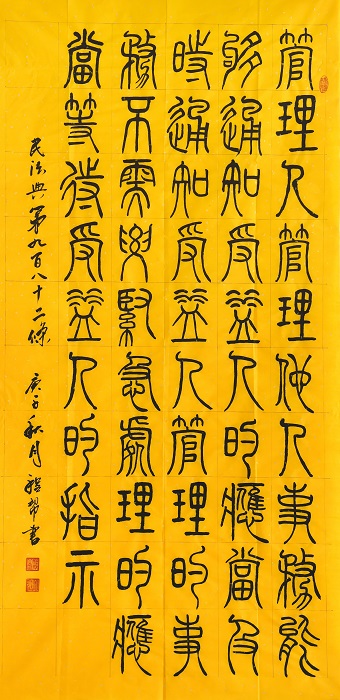 管理人管理他人事務能
够通知受益人的應當及
時通知受益人管理的事
務不需要緊急處理的應
當等待受益人的指示
民法典第九百八十二條 庚子秋月 書